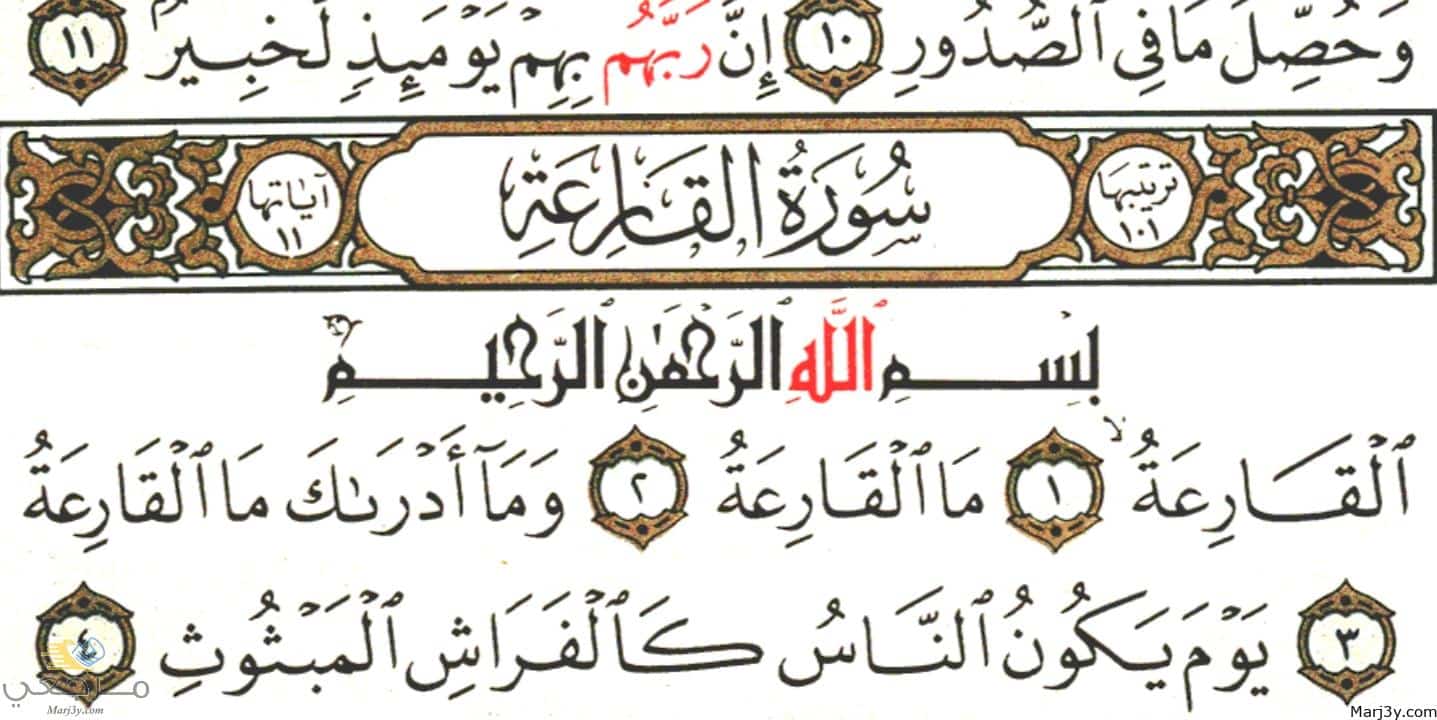 وَحُصِّلَ مَا فِى ٱلصُّدُورِ ١٠ إِنَّ رَبَّهُم بِهِمْ يَوْمَئِذٍ لَّخَبِيرٌۢ ١١
ترتيبها ١٠١ سُورَةُ القَارِعَةِ آياتها ١١
بِسْمِ ٱللَّهِ ٱلرَّحْمَٰنِ ٱلرَّحِيمِ
ٱلْقَارِعَةُ ١ مَا ٱلْقَارِعَةُ ٢ وَمَآ أَدْرَىٰكَ مَا ٱلْقَارِعَةُ
٣ يَوْمَ يَكُونُ ٱلنَّاسُ كَٱلْفَرَاشِ ٱلْمَبْثُوثِ ٤
Marj3y.com
Marj3y.com